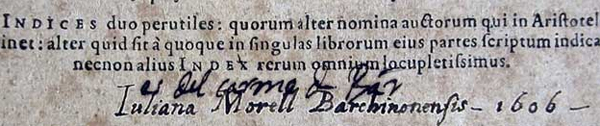 INDICES duo perutiles: quorum alter nomina auctorum qui in Aristotel
inet: alter quid sit à quoque in singulas librorum eius partes scriptum indica
necnon alius INDEX rerum omnium locupletissimus.
es del carme de Bar
Iuliana Morell Barchinonensis - 1606 -